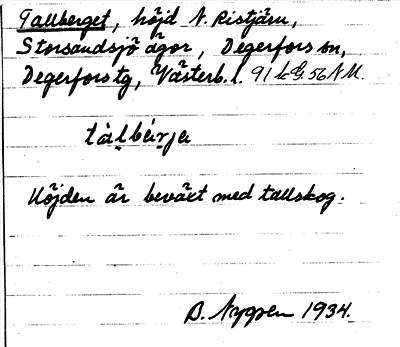 Tallberget, höjd N. Ristjärn,
Storsandsjö ägor, Degerfors sn,
Degerfors tg, Västerb. l. 91 b G 56 N M.
tàlbárja
Höjden är beväxt med tallskog.
B. Nygren 1934.